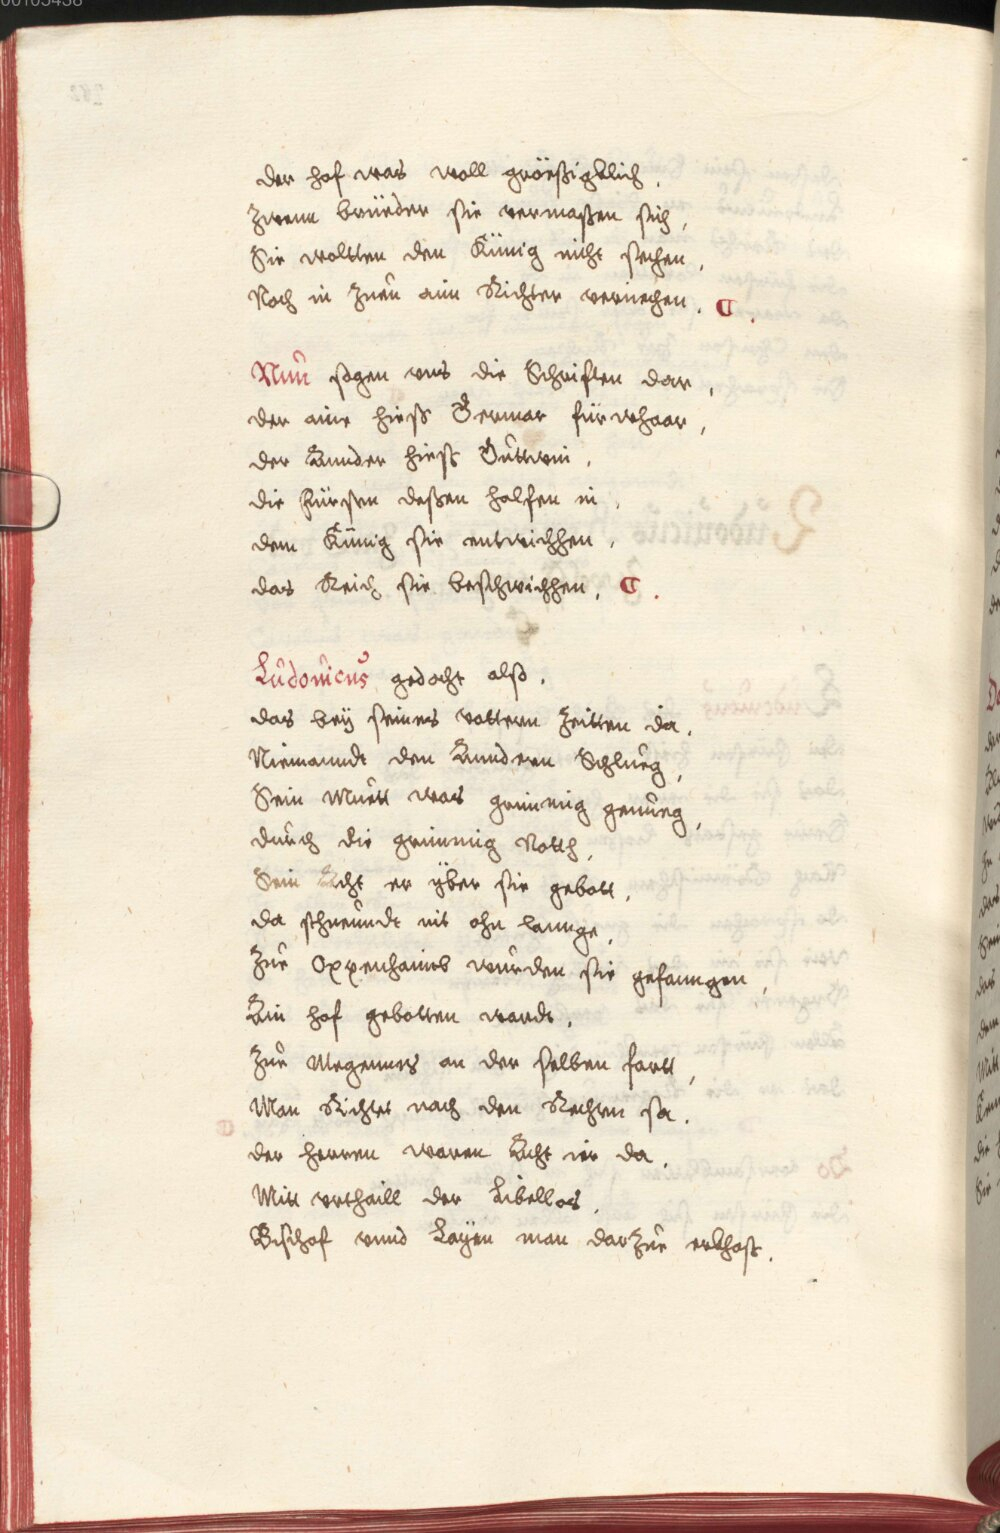 der hof was voll gröeßigklich,
Zwenn brüeder sie vermaßen sich,
Sie woltten den Künig nicht sechen,
Noch in Zuen ain Richter veriechen.
Nun sagen vns die Schrifften dar,
der aine hieß Ödemar fürwhaar,
der Annder hieß Outtwin,
die Fürsten deßen halfen in,
dem Künig sie entwichhen,
das Reich sie beschwichhen,
Ludouicus gedacht also,
das bey seines vattern Zeitten da,
Niemanndt den Anndern Schlueg,
Sein Muett was grimmig genueg,
durch die grimmig Notth,
Sein Acht er über sie gebott,
da nit ohn lannge,
Zue Oppenhaimb wurden sie gefanngen,
Ain hof gebotten wardt,
Zue Megennes an der selben fartt,
Man Richtet nach den Rechten sa,
der herren waren Acht ier da,
Mitt vrthaill der Libellos,
Bischof vnnd Layen man darzue erkhoß,